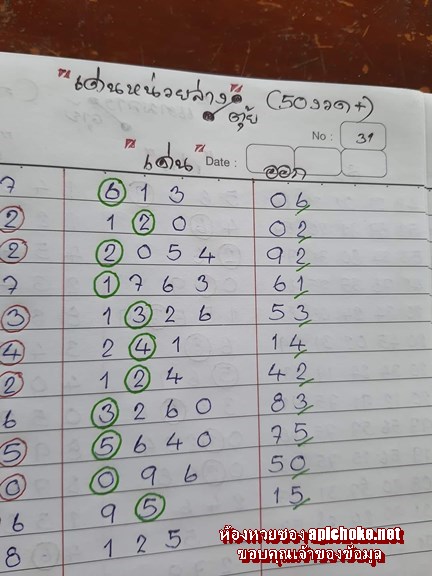 "เด่นหน่วยล่าง" (50งวด+)
ตุ้ย
No : 31
"เด่น" Date : ออก
7 6 1 3 06
2 1 2 0 02
2 2 0 5 4 92
7 1 7 6 3 61
3 1 3 2 6 53
4 2 4 1 14
2 1 2 4 42
6 3 2 6 0 83
5 5 6 4 0 75
0 0 9 6 50
6 9 5 15
8 1 2 5
ห้องหวยซอง apichoke.net
ขอบคุณเจ้าของข้อมูล